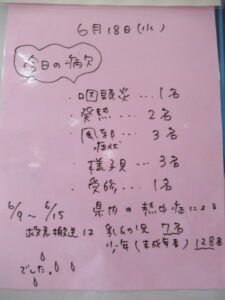 6月18日(水)
今日の病欠
・咽頭炎…1名
・発熱…2名
・風邪症状…3名
・様子見…3名
・受診…1名
6/9～6/15 県内の熱中症による
救急搬送は 乳幼児 7名
少年(未成年者) 128名
でした。